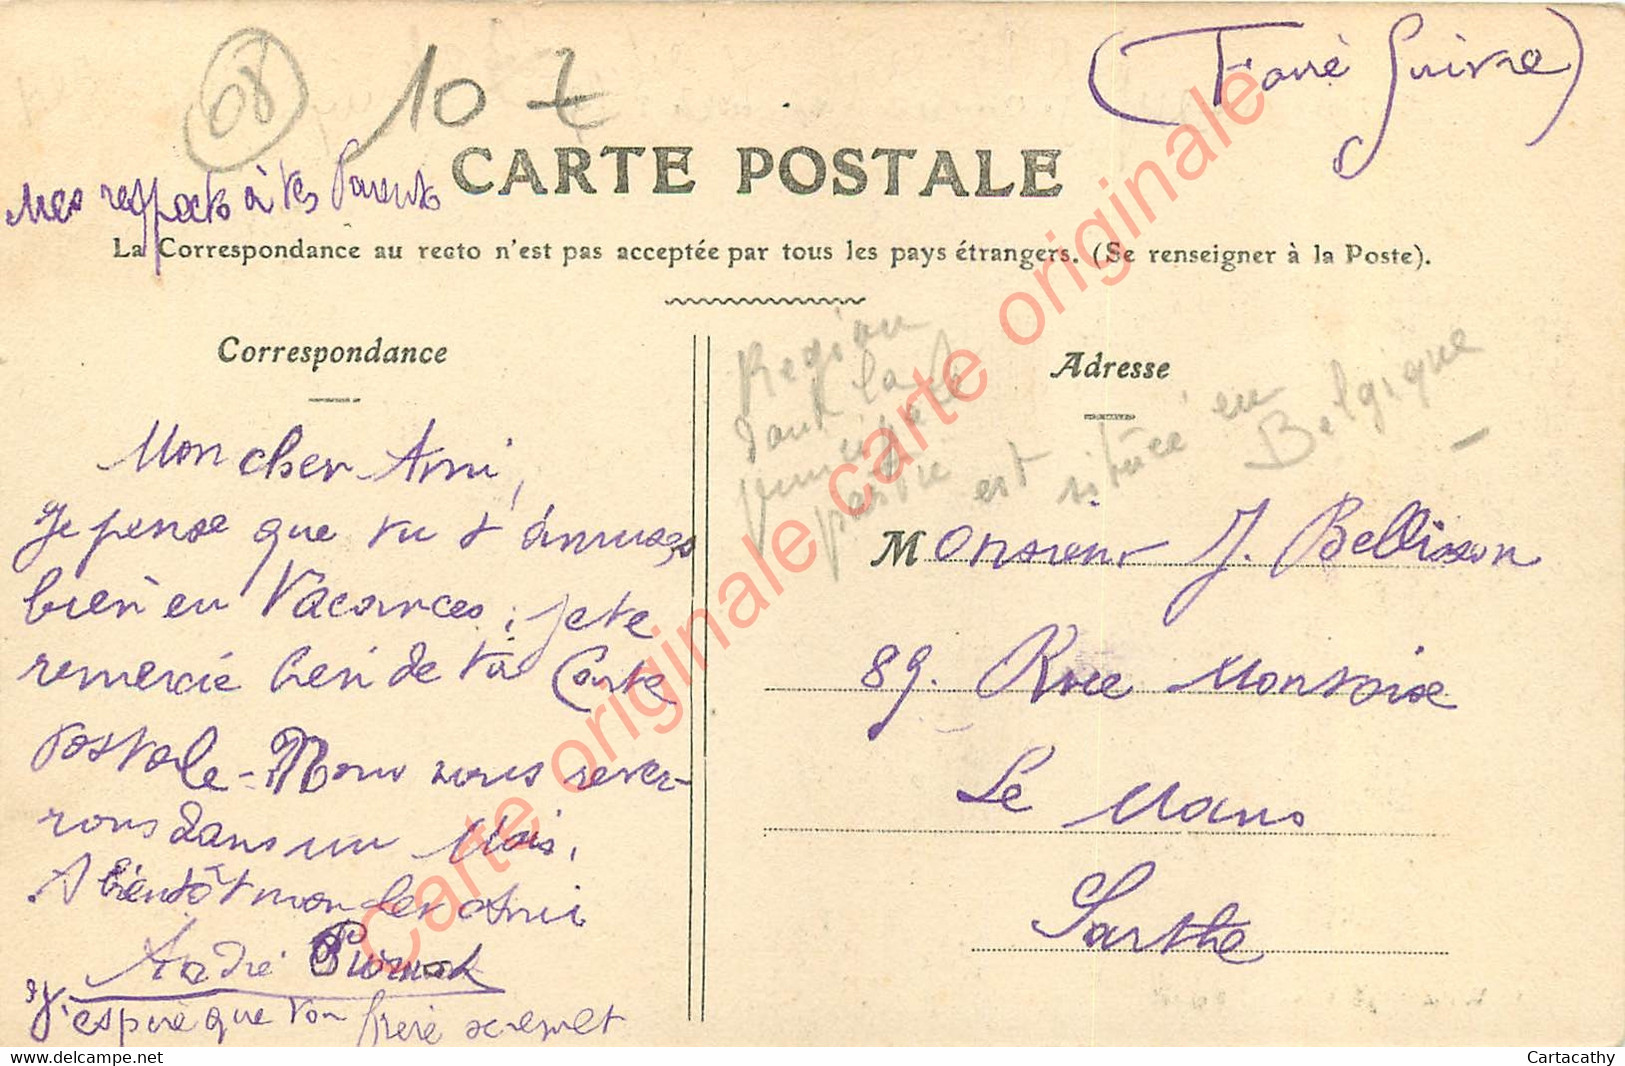 (Faire Suivre)
08
10 7
CARTE POSTALE
Mes respects à tes Parents
La Correspondance au recto n'est pas acceptée par tous les pays étrangers. (Se renseigner à la Poste).
Correspondance
Mon cher Ami,
Je pense que tu t'amuses
bien en Vacances, je te
remercie bien de ta Carte
postale - Nous nous rever-
rons dans un Mois.
A bientôt mon cher Ami
André
J'espère que ton frère se remet
Region
dont la
principale
partie est située en
Belgique
Adresse
Monsieur J. Bellisson
89. Rue Montoise
Le Mans
Sarthe
Carte originale carte originale carte originale
Cartacathy